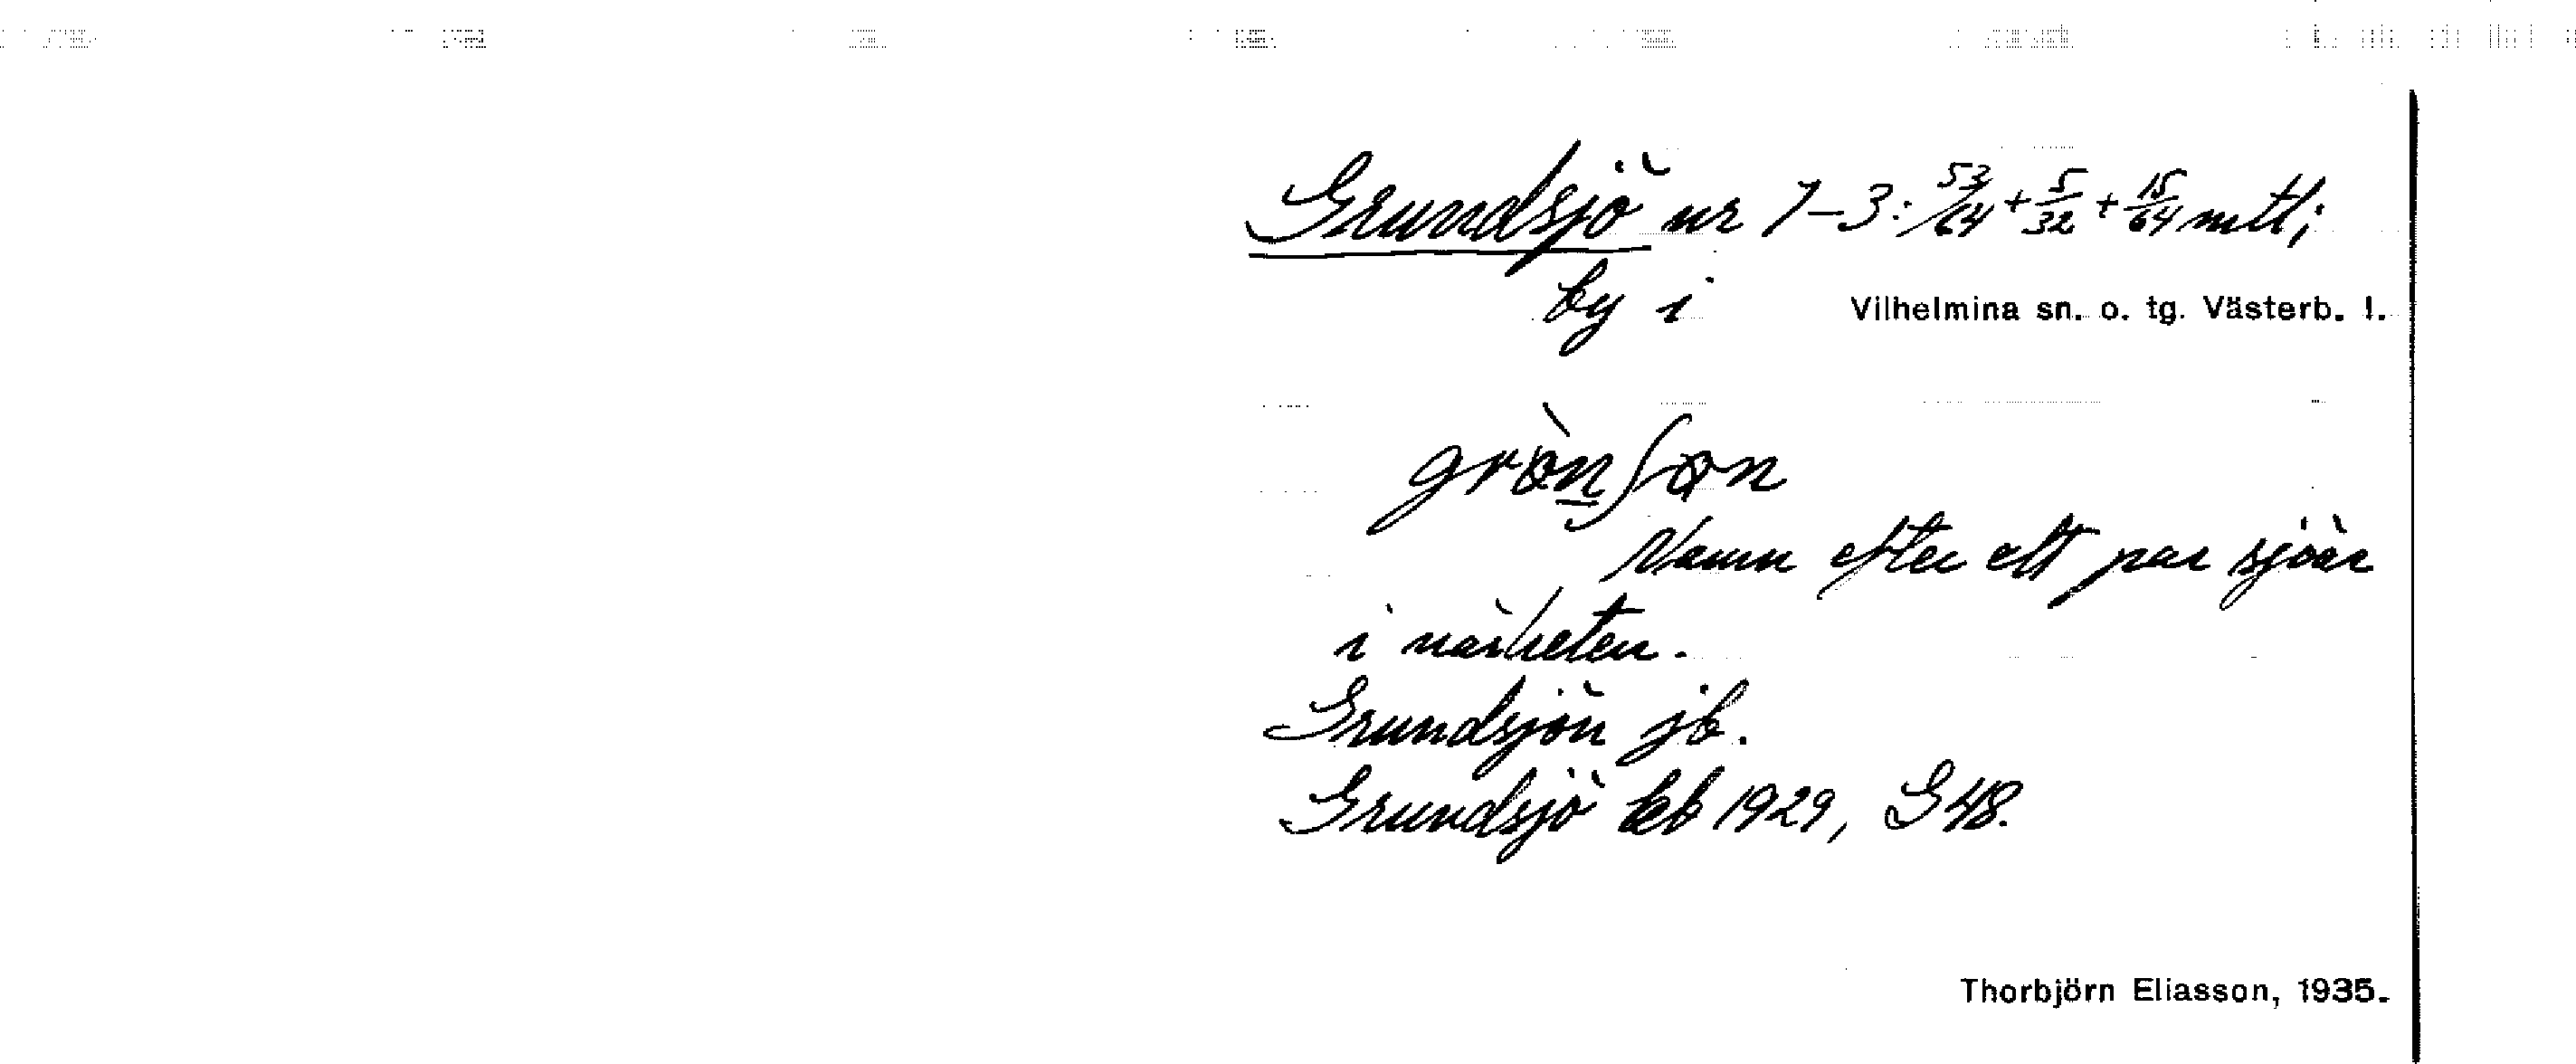 Grundsjö nr 1-3: 53/64 + 5/32 + 15/64 mtl;
by i Vilhelmina sn. o. tg. Västerb. l.
Namn efter ett par sjöar
i närheten.
Grundsjön jb.
Grundsjö kb 1929, S 48.
Thorbjörn Eliasson, 1935.